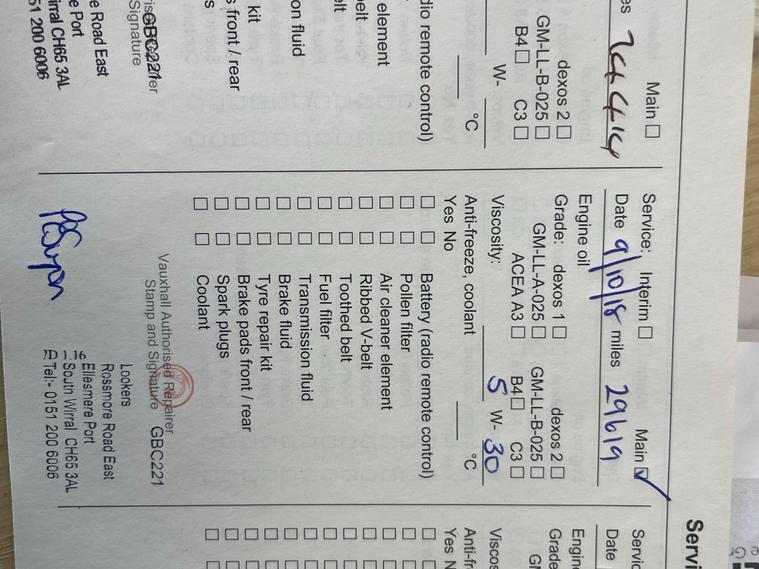 Servi
es 24414
Main
dexos 2
GM-LL-B-025
B4 C3
W-
°C
dio remote control)
element
elt
belt
on fluid
kit
s front / rear
s
GBC221
Signature
e Road East
e Port
irral CH65 3AL
51 200 6006
Service: Interim Main ✓
Date 9/10/18 miles 29619
Engine oil
Grade: dexos 1 dexos 2
GM-LL-A-025 GM-LL-B-025
ACEA A3 B4 C3
Viscosity: 5 W- 30
Anti-freeze, coolant °C
Yes No
Battery (radio remote control)
Pollen filter
Air cleaner element
Ribbed V-belt
Toothed belt
Fuel filter
Transmission fluid
Brake fluid
Tyre repair kit
Brake pads front / rear
Spark plugs
Coolant
Vauxhall Authorised Repairer
Stamp and Signature GBC221
Lookers
Rossmore Road East
Ellesmere Port
South Wirral CH65 3AL
Tel:- 0151 200 6006
Servic
Date
Engine
Grade
GM
Viscos
Anti-fr
Yes N